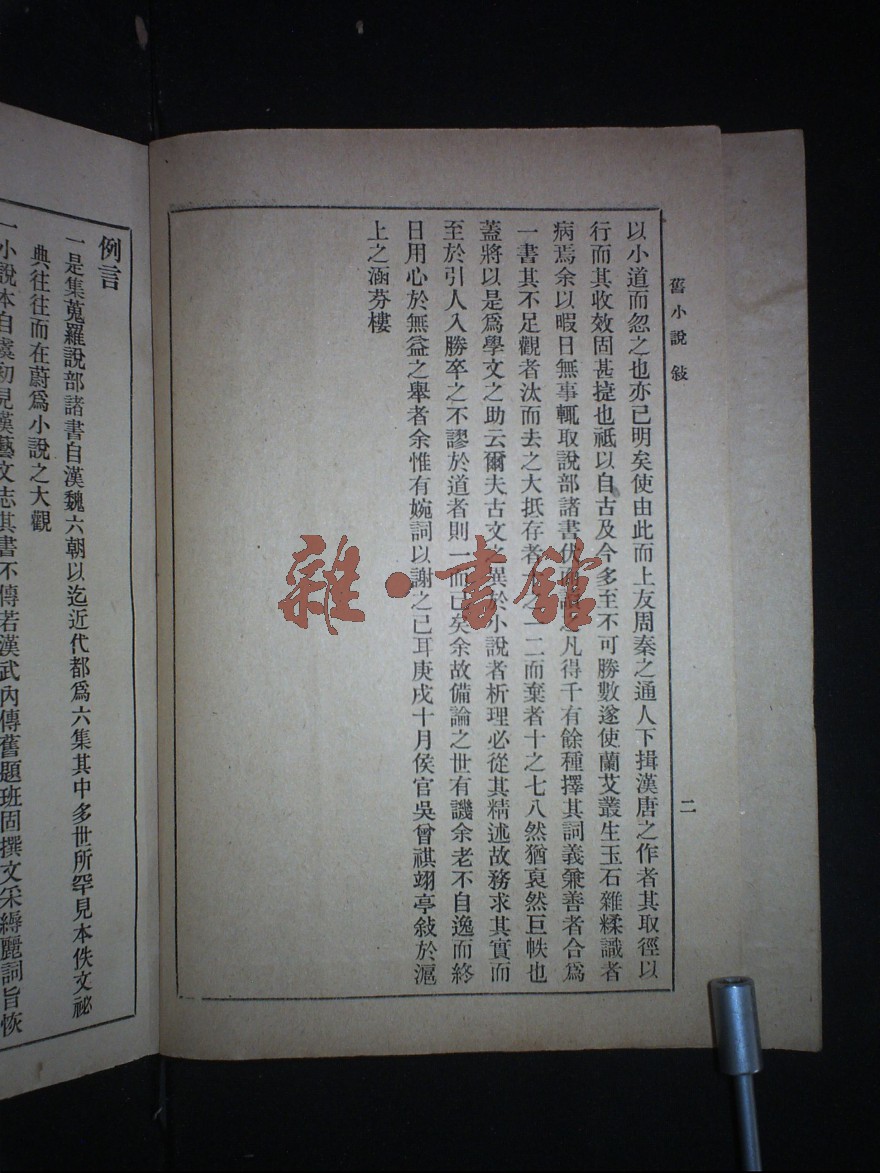 舊小說 敍
二
以小道而忽之也亦已明矣使由此而上友周秦之通人下揖漢唐之作者其取徑以
行而其收效固甚捷也祗以自古及今多至不可勝數遂使蘭艾叢生玉石雜糅識者
病焉余以暇日無事輒取說部諸書伏而讀之凡得千有餘種擇其詞義兼善者合爲
一書其不足觀者汰而去之大抵存者十之一二而棄者十之七八然猶裒然巨帙也
蓋將以是爲學文之助云爾夫古文之異於小說者析理必從其精述故務求其實而
至於引人入勝卒之不謬於道者則一而已矣余故備論之世有譏余老不自逸而終
日用心於無益之舉者余惟有婉詞以謝之已耳庚戌十月侯官吳曾祺翊亭敍於滬
上之涵芬樓
例言
一是集蒐羅說部諸書自漢魏六朝以迄近代都爲六集其中多世所罕見本佚文祕
典往往而在蔚爲小說之大觀
一小說本自虞初見漢藝文志其書不傳若漢武內傳舊題班固撰文采縟麗詞旨恢
雜·書館